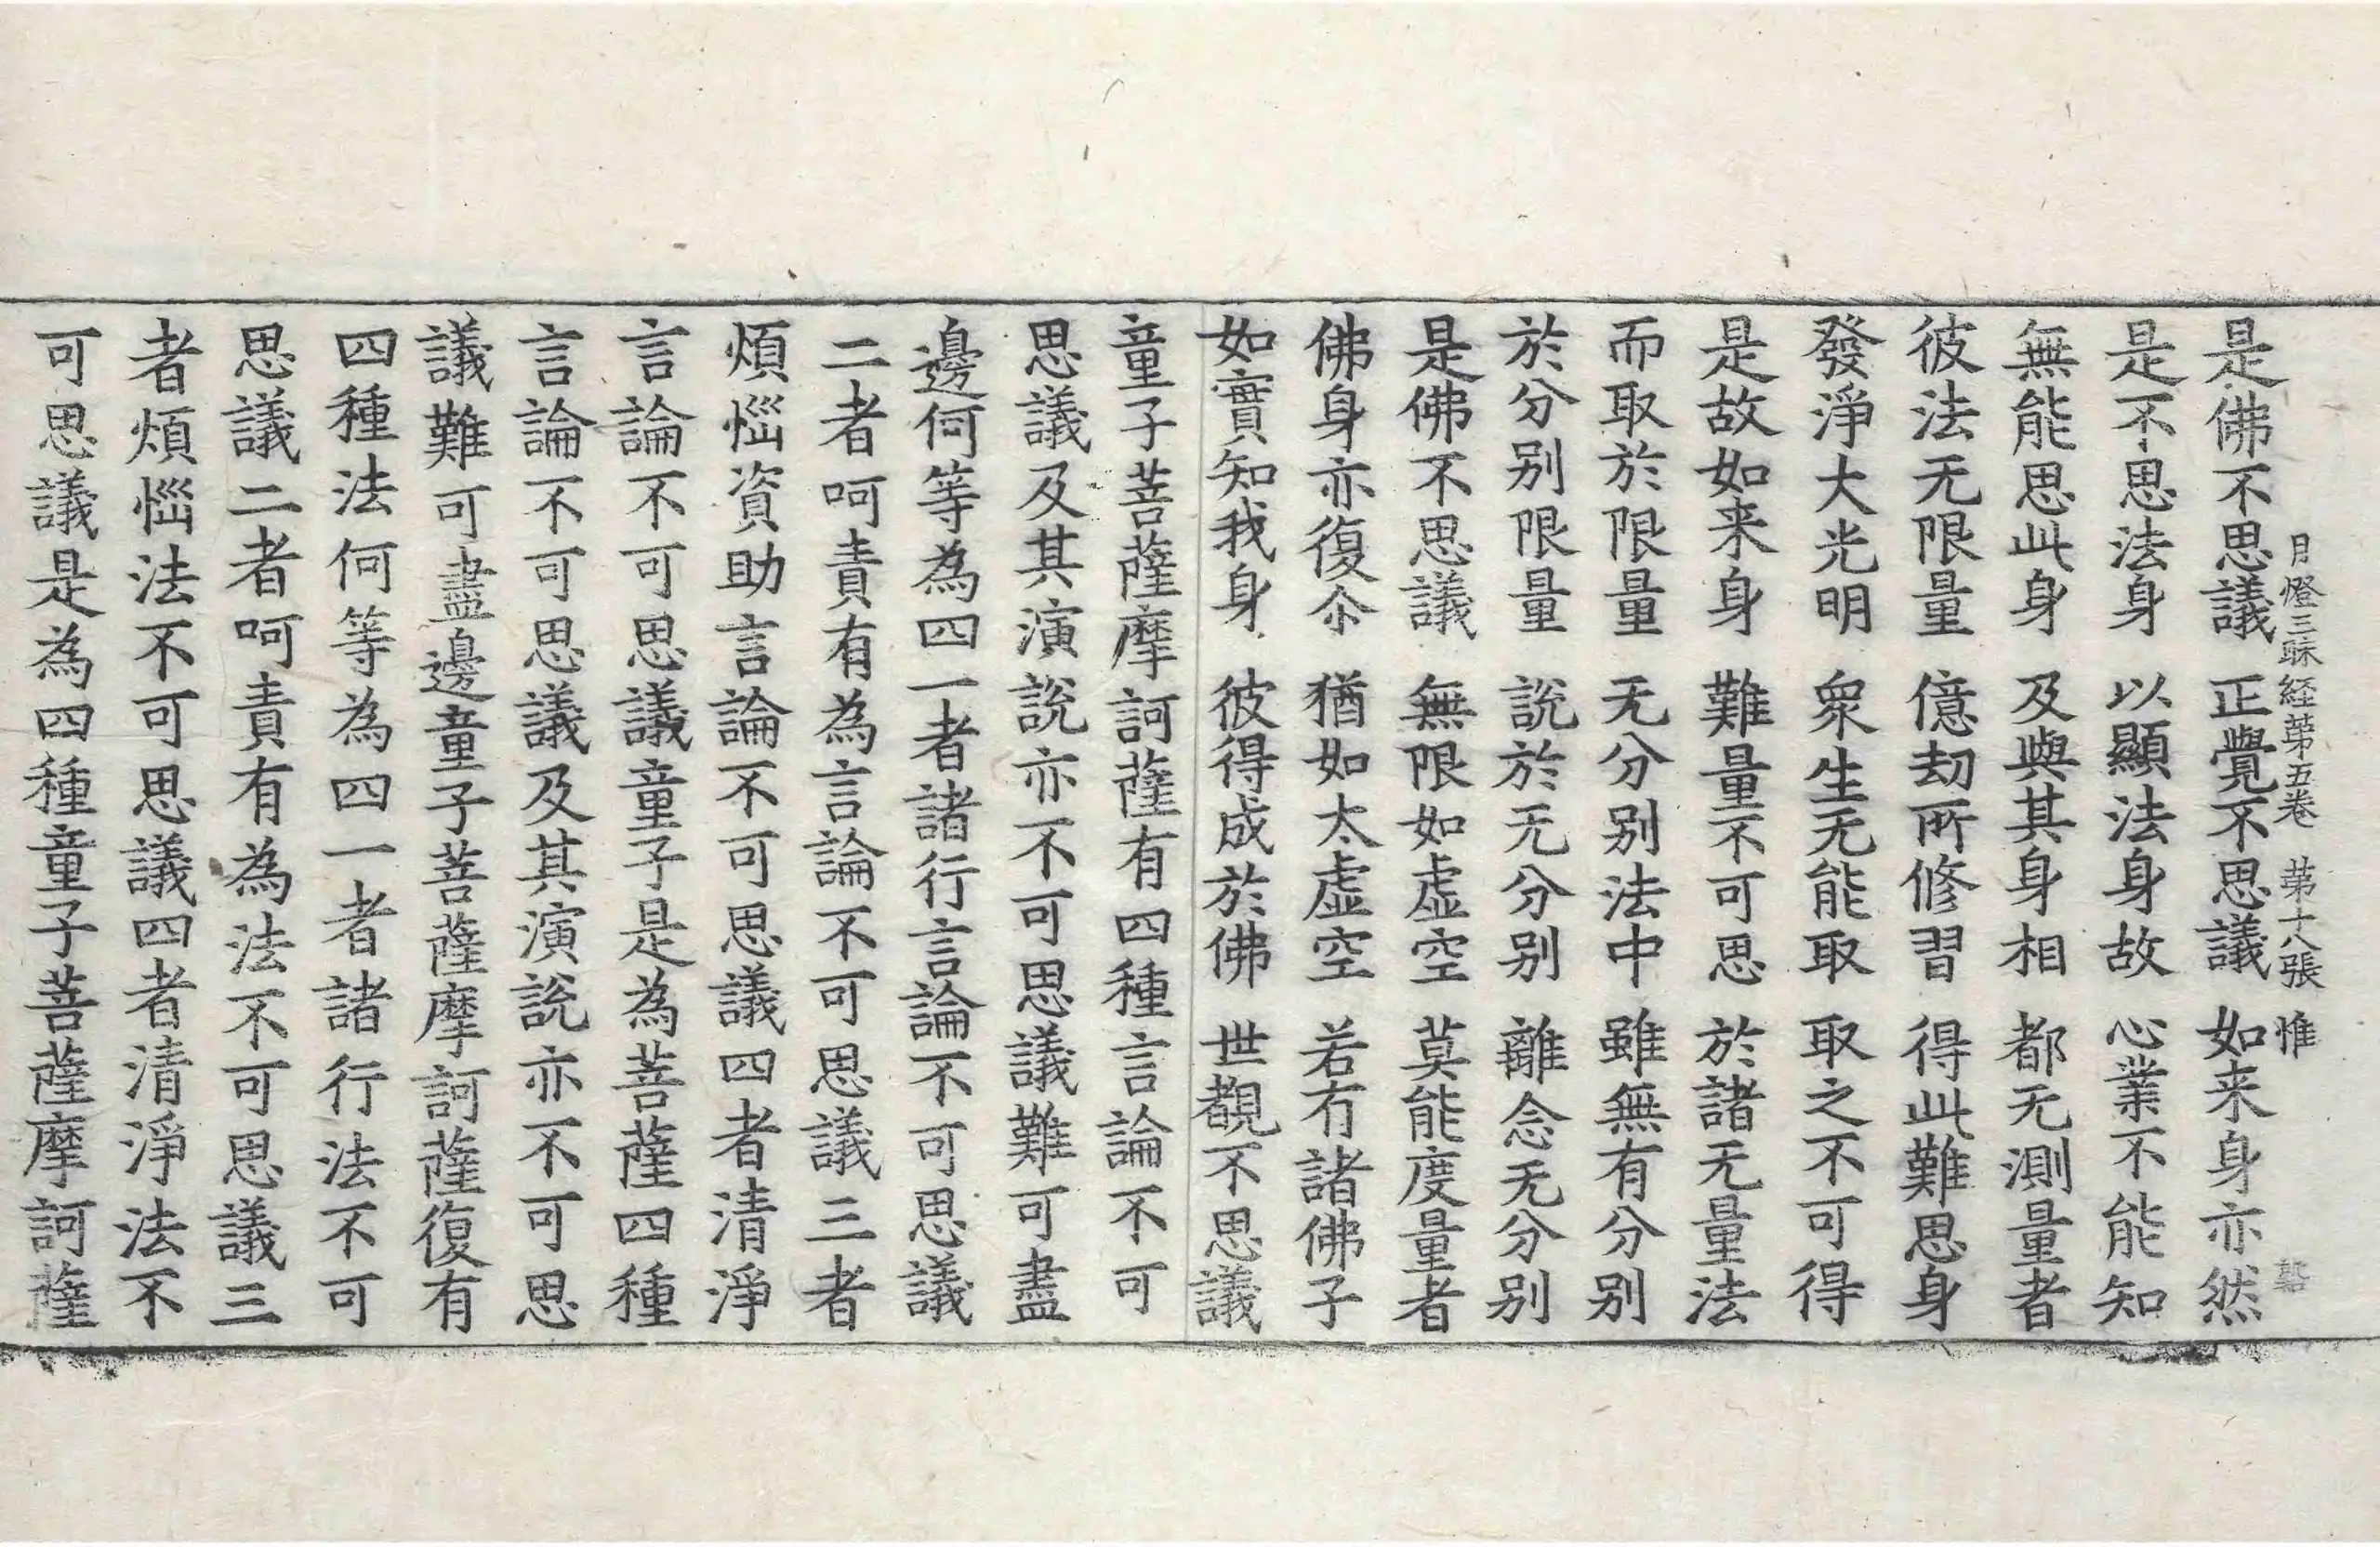 月燈三昧経苐五卷 苐十八張 惟
是佛不思議 正覺不思議 如来身亦然
是不思法身 以顯法身故 心業不能知
無能思此身 及與其身相 都无測量者
彼法无限量 億劫所修習 得此難思身
發淨大光明 衆生无能取 取之不可得
是故如来身 難量不可思 於諸无量法
而取於限量 无分别法中 雖無有分别
於分别限量 說於无分别 離念无分别
是佛不思議 無限如虚空 莫能度量者
佛身亦復尒 猶如太虚空 若有諸佛子
如實知我身 彼得成於佛 世覩不思議
童子菩薩摩訶薩有四種言論不可
思議及其演說亦不可思議難可盡
邊何等為四一者諸行言論不可思議
二者呵責有為言論不可思議三者
煩惱資助言論不可思議四者清淨
言論不可思議童子是為菩薩四種
言論不可思議及其演說亦不可思
議難可盡邊童子菩薩摩訶薩復有
四種法何等為四一者諸行法不可
思議二者呵責有為法不可思議三
者煩惱法不可思議四者清淨法不
可思議是為四種童子菩薩摩訶薩